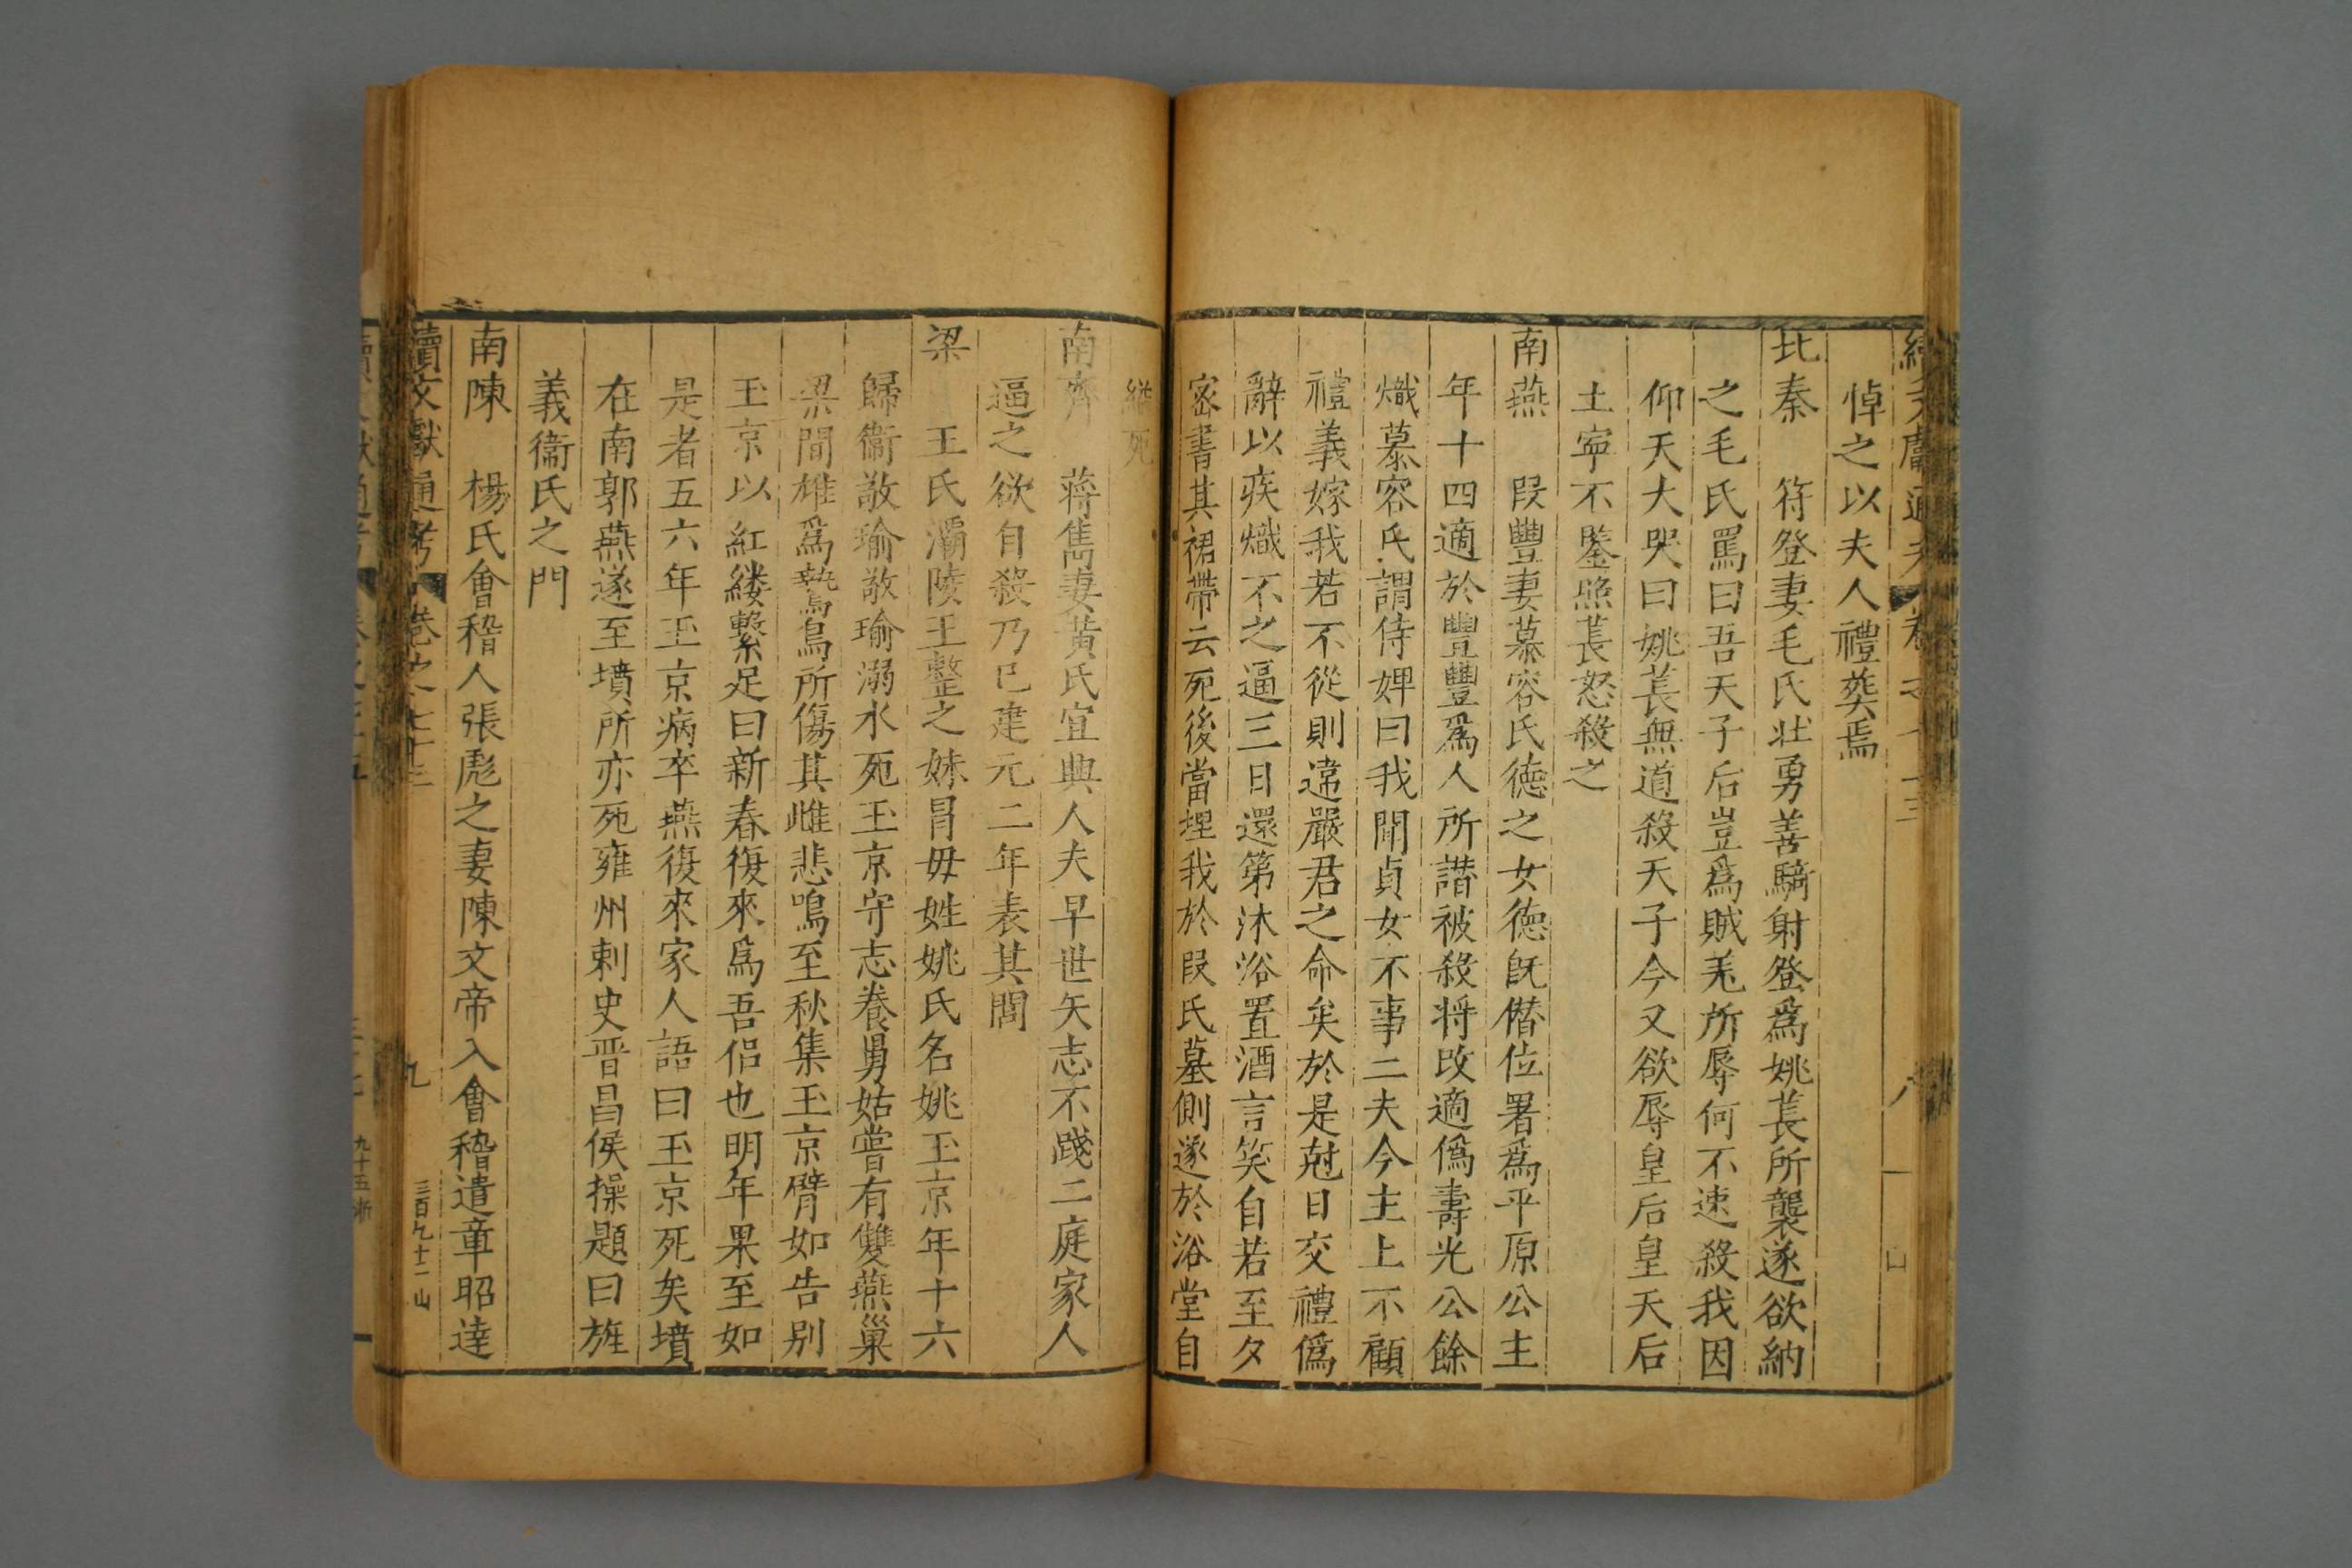 悼之以夫人禮葬焉
北秦　符登妻毛氏壯勇善騎射登爲姚萇所襲遂欲納
之毛氏罵曰吾天子后豈爲賊羌所辱何不速殺我因
仰天大哭曰姚萇無道殺天子今又欲辱皇后皇天后
土寜不鑒照萇怒殺之
南燕　段豐妻慕容氏德之女德旣僣位署爲平原公主
年十四適於豐豐爲人所譖被殺将改適僞壽光公餘
熾慕容氏謂侍婢曰我聞貞女不事二夫今主上不顧
禮義嫁我若不從則違嚴君之命矣於是尅日交禮僞
辭以疾熾不之逼三日還第沐浴置酒言笑自若至夕
密書其裙帶云死後當埋我於段氏墓側遂於浴堂自
縊死
南齊　蔣雋妻黃氏宜興人夫早世矢志不踐二庭家人
逼之欲自殺乃已建元二年表其閭
梁　王氏灞陵王整之妹冐毋姓姚氏名姚玉京年十六
歸衞敬瑜敬瑜溺水死玉京守志養舅姑嘗有雙燕巢
梁間雄爲鷙鳥所傷其雌悲鳴至秋集玉京臂如告别
玉京以紅縷繫足曰新春復來爲吾侶也明年果至如
是者五六年玉京病卒燕復來家人語曰玉京死矣墳
在南郭燕遂至墳所亦死雍州刺史晋昌侯操題曰旌
義衞氏之門
南陳　楊氏會稽人張彪之妻陳文帝入會稽遣章昭達
續文獻通考　卷之七十三　九　三百九十二　山